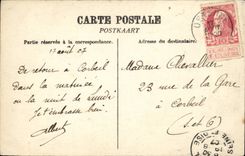 CARTE POSTALE
POSTKAART
Partie réservée à la correspondance.
Adresse du destinataire.
12 août 07
de retour à Corbeil
dans la matinée
ou la nuit de lundi
je t'embrasse bien
Albert
Madame Chevallier
23 rue de la Gare
à Corbeil
(S et O)